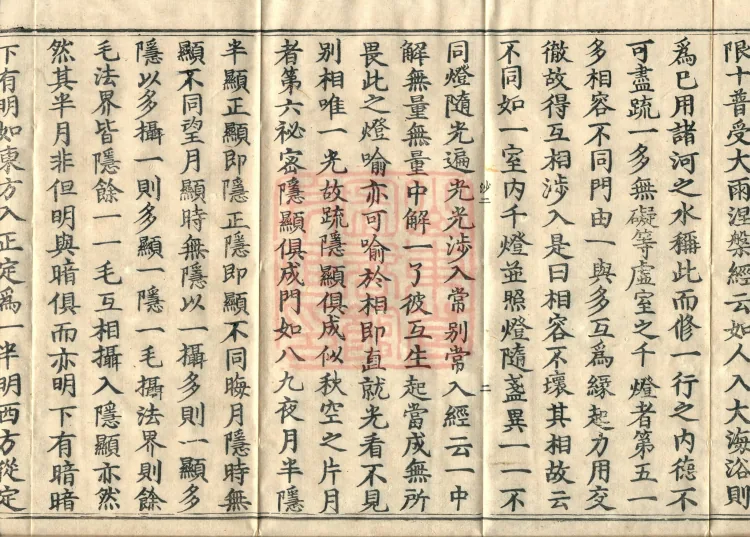 限十普受大雨涅槃經云如人入大海浴則
為已用諸河之水稱此而修一行之内德不
可盡疏一多無礙等虛室之千燈者第五一
多相容不同門由一與多互為緣起力用交
徹故得互相涉入是曰相容不壞其相故云
不同如一室内千燈並照燈隨盞異一一不
同燈隨光遍光光涉入常別常入經云一中
鈔二
二
解無量無量中解一了彼互生起當成無所
畏此之燈喻亦可喻於相即直就光看不見
別相唯一光故疏隱顯俱成似秋空之片月
者第六祕密隱顯俱成門如八九夜月半隱
半顯正顯即隱正隱即顯不同晦月隱時無
顯不同望月顯時無隱以一攝多則一顯多
隱以多攝一則多顯一隱一毛攝法界則餘
毛法界皆隱餘一一毛互相攝入隱顯亦然
然其半月非但明與暗俱而亦明下有暗暗
下有明如東方入正定為一半明西方從定